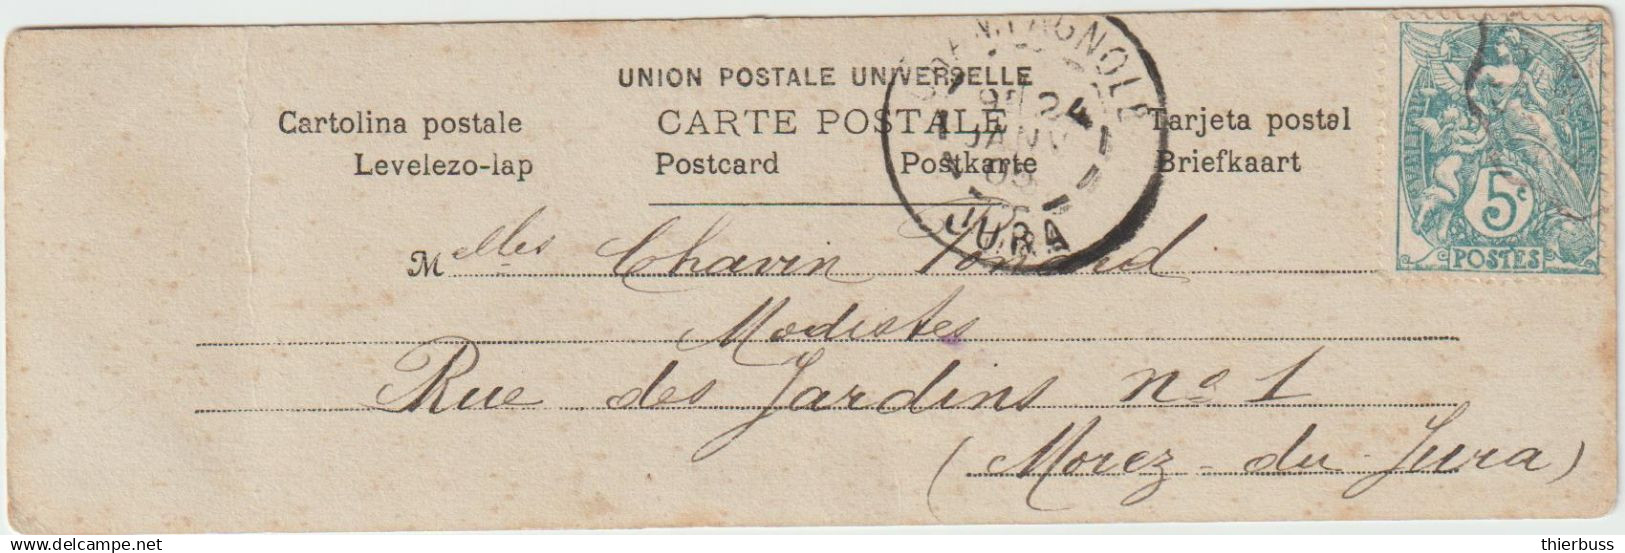 UNION POSTALE UNIVERSELLE
Cartolina postale CARTE POSTALE Tarjeta postal
Levelezo-lap Postcard Postkarte Briefkaart
CHAMPAGNOLE
24
JANV
05
JURA
5c
POSTES
Melles Chavin
Modistes
Rue des Jardins no 1
(Morez-du-Jura)
www.delcampe.net
thierbuss